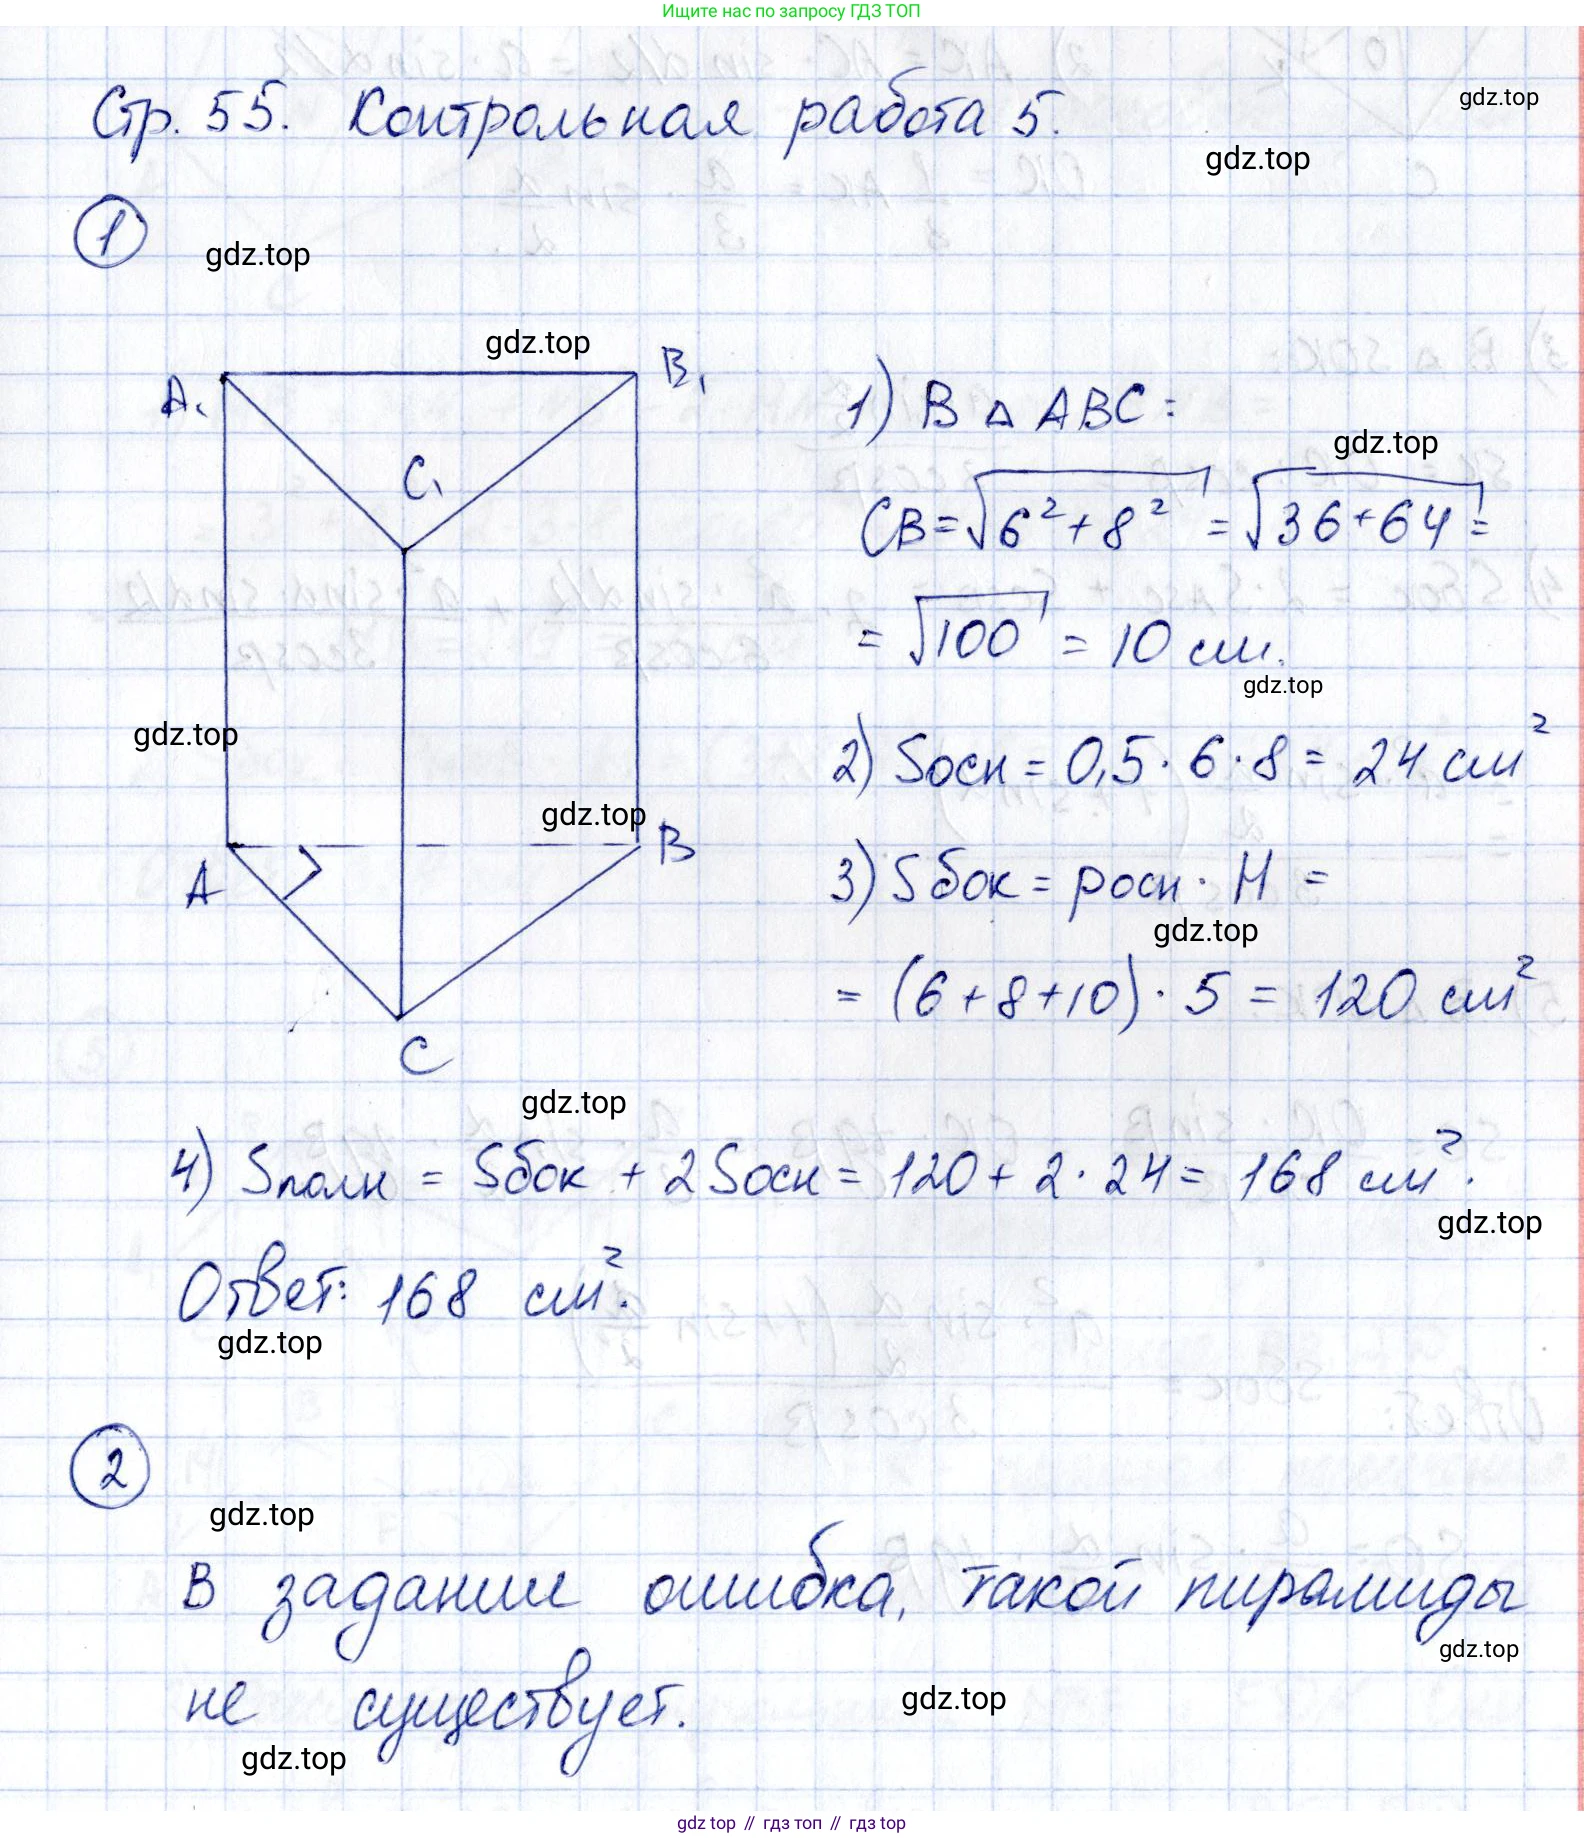 Ищите нас по запросу ГДЗ ТОП
Стр. 55. Контрольная работа 5.
gdz.top
gdz.top
1
gdz.top
gdz.top
A₁
B₁
C₁
1) В △ ABC:
gdz.top
CB = √(6² + 8²) = √(36 + 64) =
= √100 = 10 см.
gdz.top
gdz.top
2) Sосн = 0,5 · 6 · 8 = 24 см²
gdz.top
A
B
3) Sбок = pосн · H =
gdz.top
= (6 + 8 + 10) · 5 = 120 см²
C
gdz.top
4) Sполн = Sбок + 2Sосн = 120 + 2 · 24 = 168 см².
gdz.top
Ответ: 168 см².
gdz.top
2
gdz.top
В задании ошибка, такой пирамиды
gdz.top
не существует.
gdz.top
gdz.top
gdz top // гдз топ // гдз top